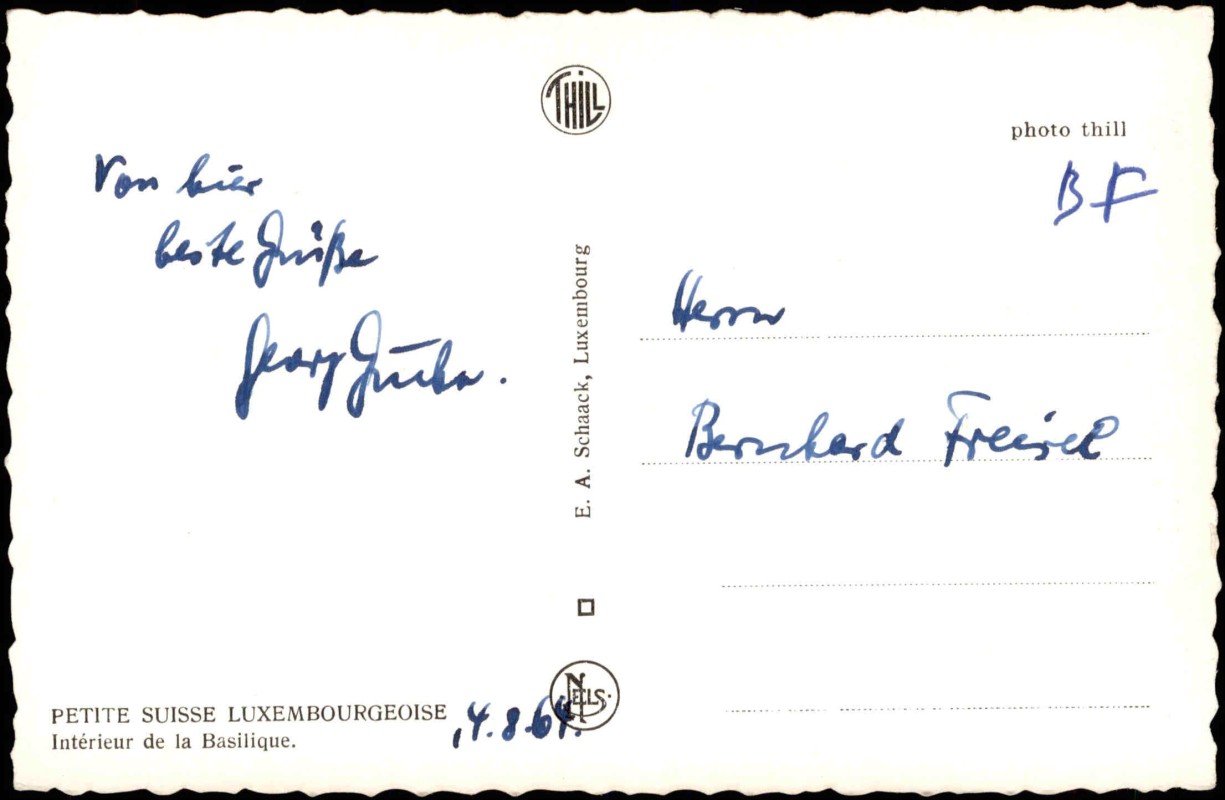 THILL
photo thill
BF
Von hier
beste Grüße
Georg
Herrn
Bernhard
E. A. Schaack, Luxembourg
NELS
PETITE SUISSE LUXEMBOURGEOISE
Intérieur de la Basilique.
, 4.8.64.